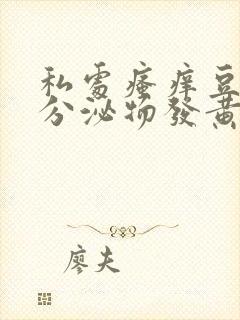 私處瘙痒豆
分泌物發黃
廖夫